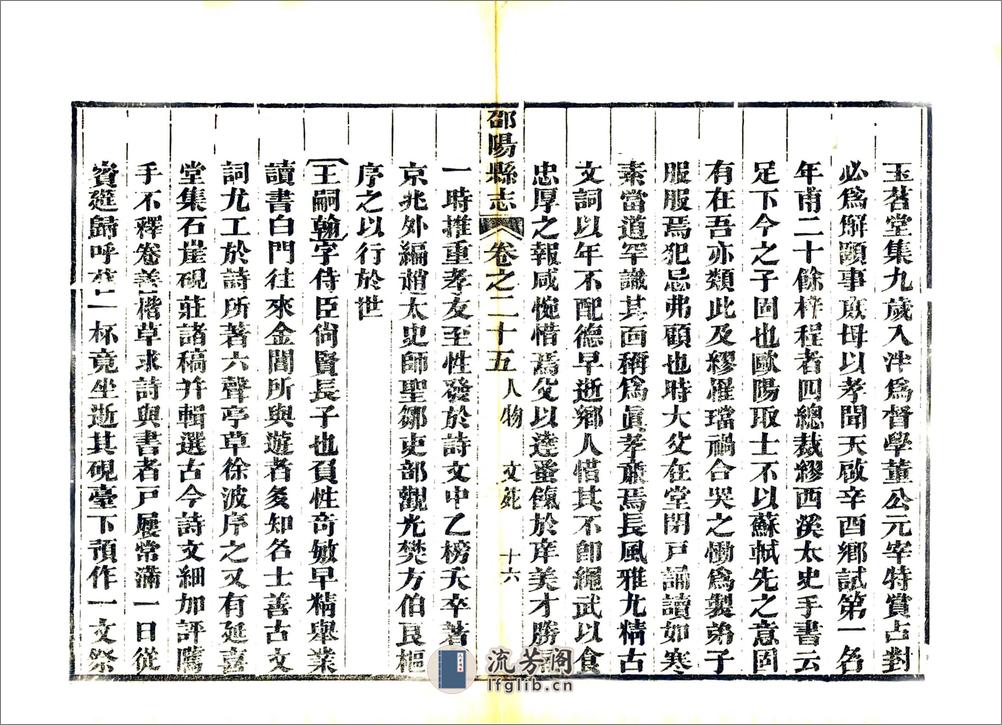 玉茗堂集九歲入泮爲督學董公元宰特賞占對
必爲解頤事庶母以孝聞天啟辛酉鄉試第一名
年甫二十餘梓程者四總裁繆西溪太史手書云
足下今之子固也歐陽取士不以蘇軾先之意固
有在吾亦類此及繆罹璫禍合哭之慟爲製弟子
服服焉犯忌弗顧也時大父在堂閉戸誦讀如寒
素當道罕識其面稱爲眞孝亷焉長風雅尤精古
文詞以年不配德早逝鄉人惜其不卽繩武以食
忠厚之報咸惋惜焉父以達蚤餼於庠美才勝
邵陽縣志 卷之二十五 人物 文苑 十六
一時推重孝友至性發於詩文中乙榜夭卒著
京兆外編趙太史師聖鄒吏部觀光樊方伯良樞
序之以行於世
王嗣翰字侍臣尙賢長子也負性竒敏早精舉業
讀書白門往來金閶所與遊者多知名士善古文
詞尤工於詩所著六聲亭草徐波序之又有延喜
堂集石崖硯莊諸稿并輯選古今詩文細加評騭
手不釋卷善楷草求詩與書者戸屨常滿一日從
賓筵歸呼茶一杯竟坐逝其硯臺下預作一文祭
流芳阁
lfglib.cn